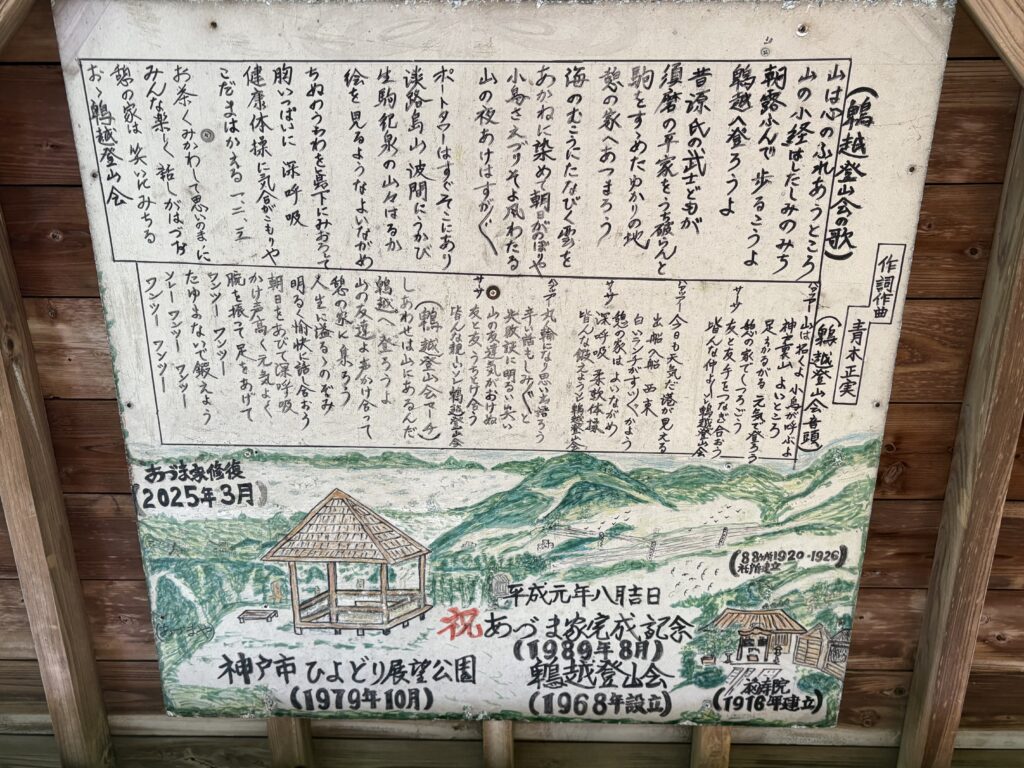 (鵯越登山会の歌)
山は心のふれあうところ
山の小経はたしみのみち
朝露ふんで 歩るこうよ
鵯越へ登ろうよ
昔源氏の武士どもが
須磨の平家をうち破らんと
駒をすゝめたゆかりの地
憩の家へあつまろう
海のむこうにたなびく雲を
あかねに染めて朝日がのぼりや
小鳥さえづりそよ風わたる
山の夜あけはすがすが
ポートタワーはすぐそこにあり
淡路島山 波間にうかび
生駒紀泉の山々はるか
絵を見るようなよいながめ
ちぬのうわわを真下にみおろして
胸いっぱいに 深呼吸
健康体操に気合がこもりや
こだまはかえる 一、二、三
お茶くみかわして思いのまゝに
みんな楽しく 話しがはづむ
憩の家は 笑いにみちる
おゝ鵯越登山会
作詞作曲
青木正実
(鵯越登山会音頭)
ハイ 山は招よ 小鳥が呼ぶよ
神撫山 よいところ
足もかるがる 元気で登ろう
憩の家でくつろごう
友と友 手をつなぎ合おう
サーサ 皆んな仲よい 鵯越登山会
今日も天気だ港が見える
出船 入船 西東
白いランチがすいすいかようよ
憩の家はよいながめ
深呼吸 柔軟体操
サーサ 皆んな鍛えようと 鵯越登山会
丸い輪になり思い出語ろう
辛い話もしみじみと
失敗談に明るい笑い
山の友達気がおけぬ
友と友うちとけ合う
サーサ 皆んな親しい 鵯越登山会
(鵯越登山会マーチ)
しあわせは山にあるんだ
鵯越へ登ろうよ
山の友達よ声かけ合って
憩の家に集ろう
人生に溢るゝのぞみ
明るく愉快に語り合おう
朝日をあびて深呼吸
かけ声高く元気よく
腕を振って足をあげて
ワンツー ワンツー
たゆまないで鍛えよう
ソレー ワンツー ワンツー
ワンツー ワンツー
あづま家修復
(2025年3月)
(88ヶ所1920-1926)
平成元年八月吉日
祝 あづま家完成記念
(1989年8月)
神戸市 ひよどり展望公園
(1979年10月)
鵯越登山会
(1968年設立)
(1916年建立)